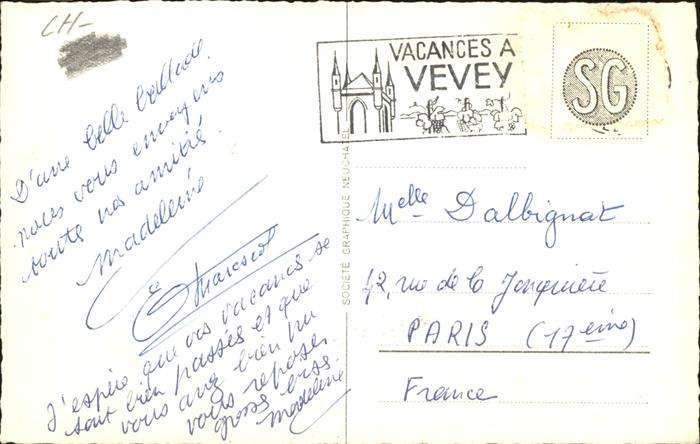 CH-
D'une belle ballade
nous vous envoyons
toute nos amitié.
Madeleine
J'espère que vos vacances se
sont bien passés et que
vous avez bien pu
vous reposer.
gross biss.
Madeleine
VACANCES A
VEVEY
SG
SOCIÉTÉ GRAPHIQUE NEUCHATEL
Melle Dalbignat
42, rue de la Jonquière
PARIS (17eme)
France